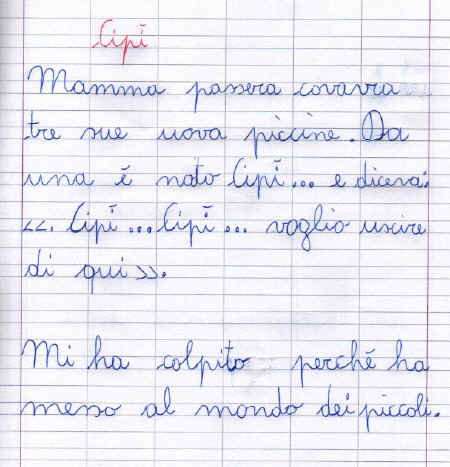 Cipì
Mamma passera covava
tre sue uova piccine. Da
una è nato Cipì... e diceva:
<<. Cipì... Cipì... voglio uscire
di qui >>.
Mi ha colpito perché ha
messo al mondo dei piccoli.